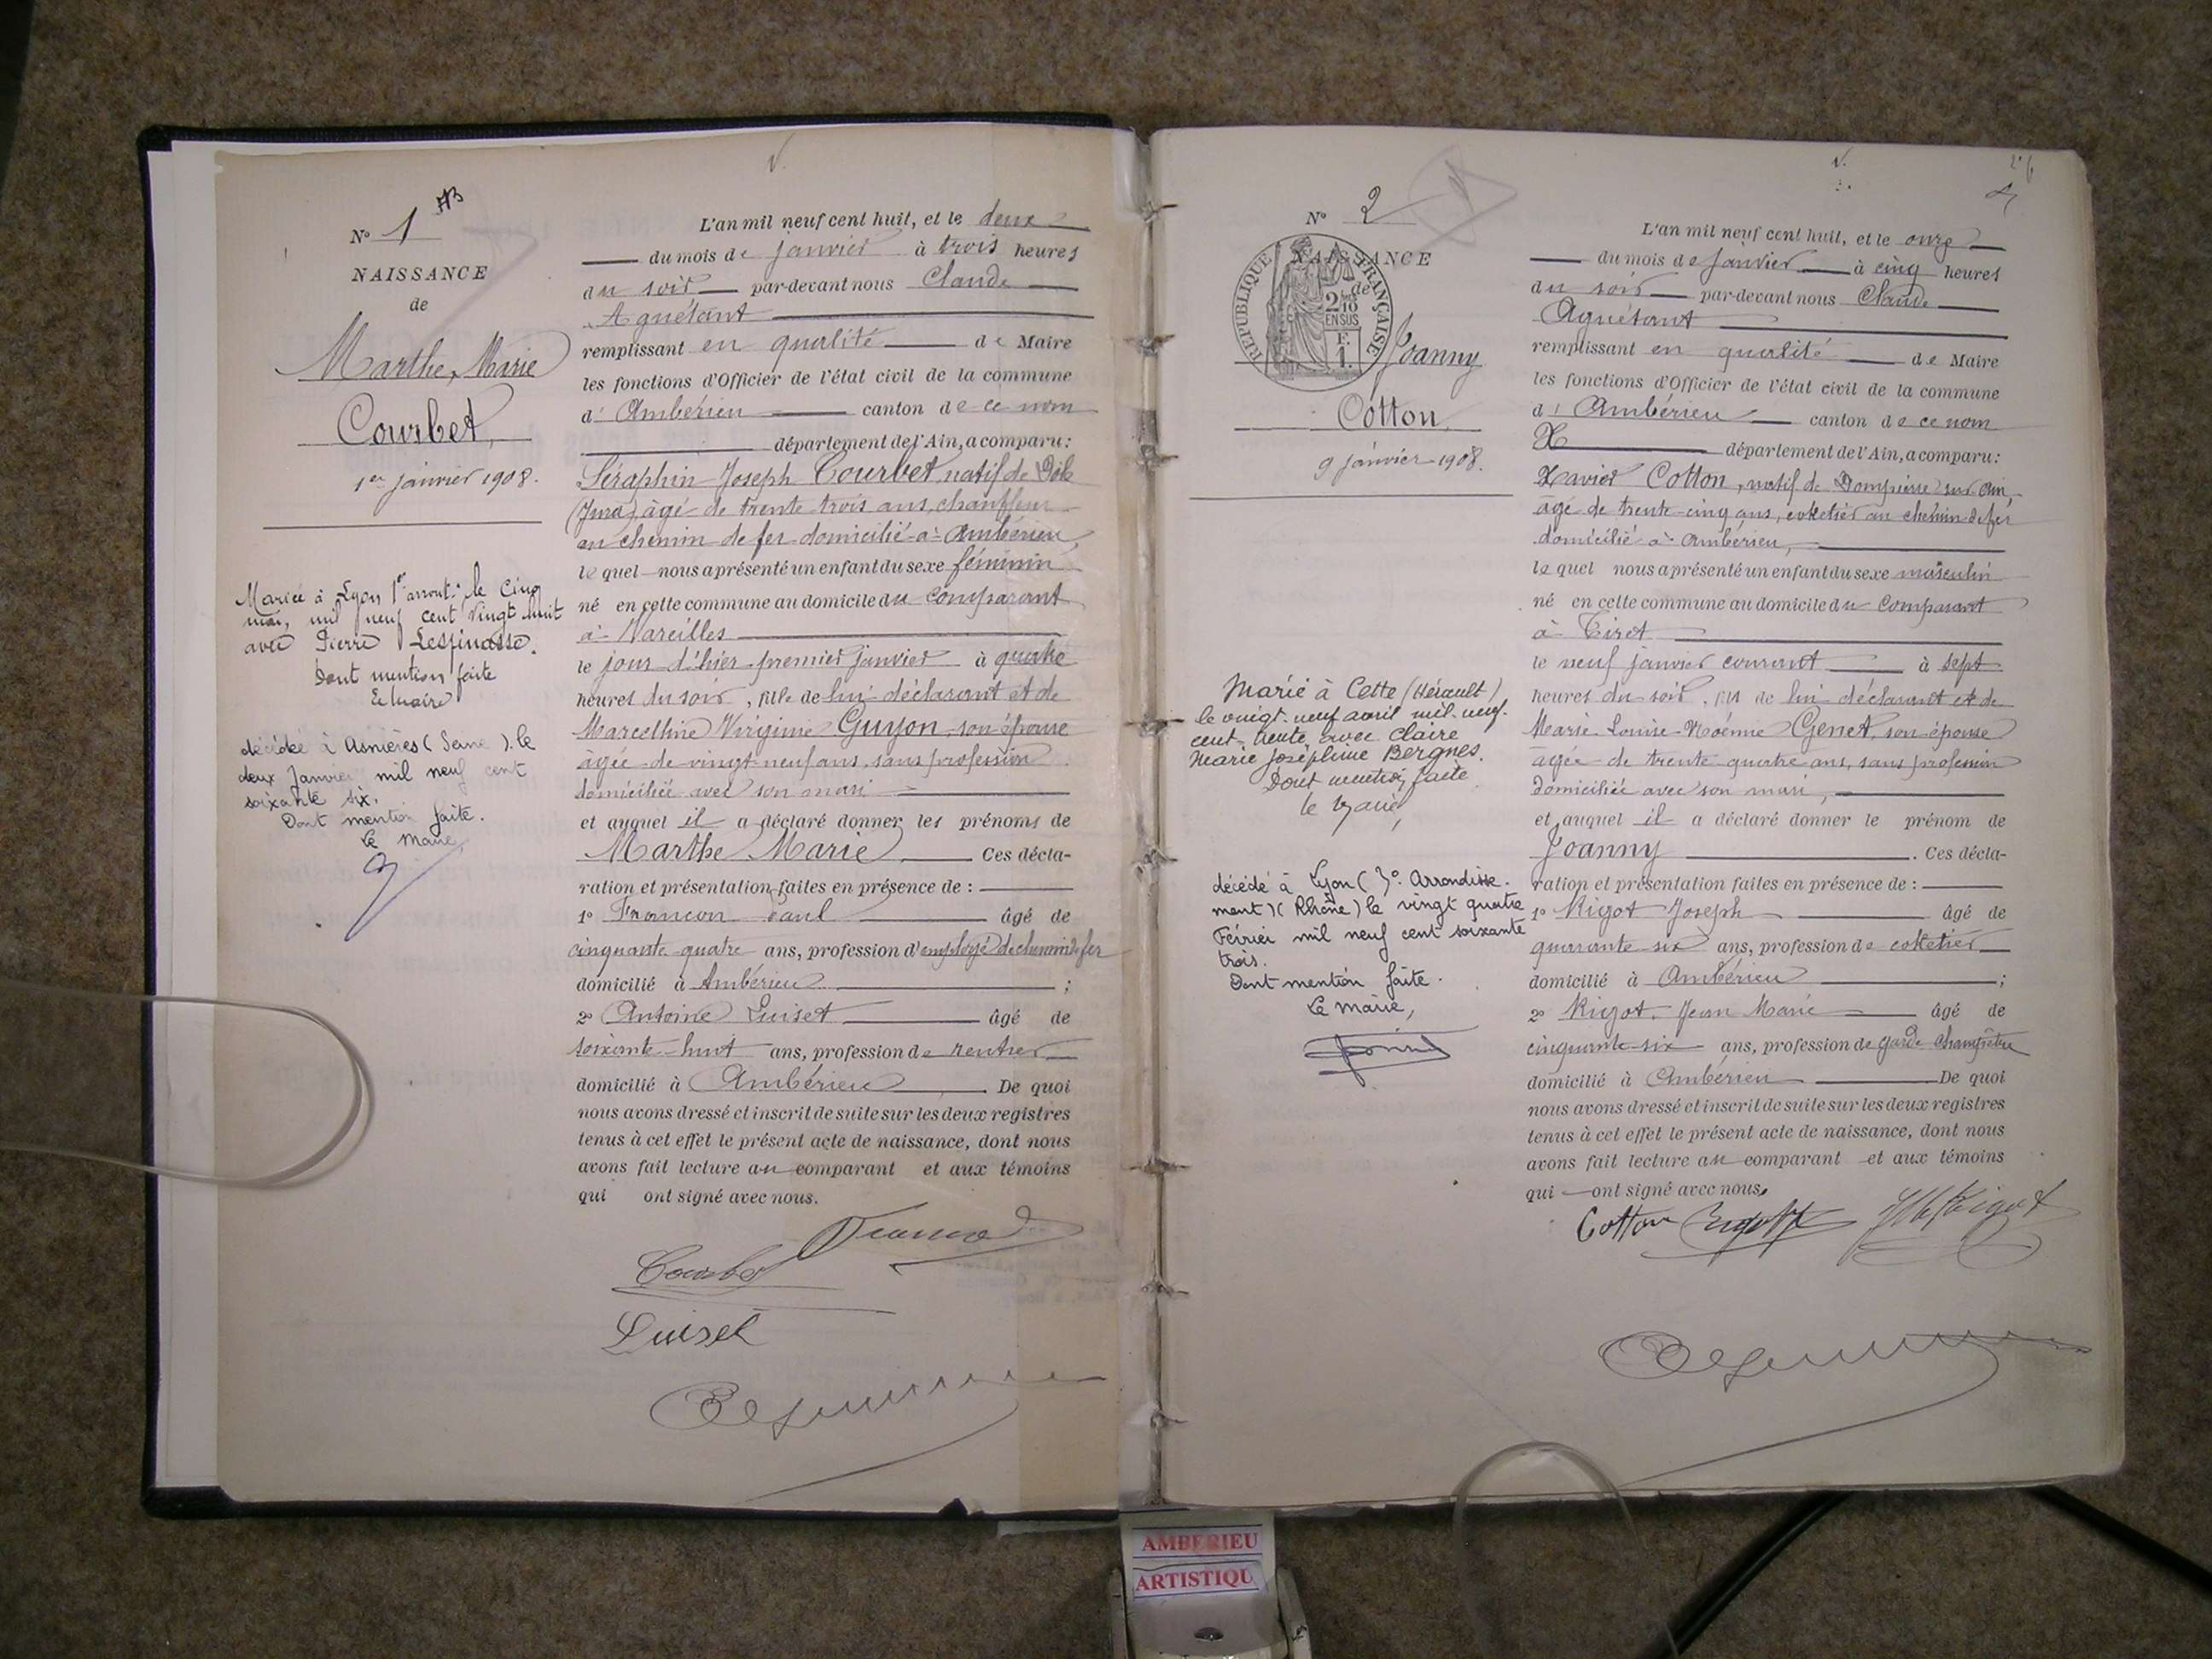 N° 1
NAISSANCE
de
Marthe, Marie
Courbet,
1er janvier 1908.
Mariée à Lyon 1er arront. le cinq
mai, mil neuf cent vingt huit
avec Pierre Lespinasse.
Dont mention faite
Le Maire
décédée à Asnières (Seine). le
deux Janvier mil neuf cent
soixante six.
Dont mention faite.
Le Maire,
L'an mil neuf cent huit, et le deux
du mois de janvier à trois heures
du soir par-devant nous Claude
Aguétant
remplissant en qualité de Maire
les fonctions d'Officier de l'état civil de la commune
d' Ambérieu canton de ce nom
département de l'Ain, a comparu:
Séraphin Joseph Courbet, natif de Dole
(Jura) âgé de trente trois ans, chauffeur
au chemin de fer domicilié à Ambérieu,
lequel nous a présenté un enfant du sexe féminin
né en cette commune au domicile du comparant
à Vareilles
le jour d'hier premier janvier à quatre
heures du soir, fille de lui déclarant et de
Marcelline Virginie Guyon, son épouse
âgée de vingt-neuf ans, sans profession
domiciliée avec son mari
et auquel il a déclaré donner les prénoms de
Marthe Marie Ces décla-
ration et présentation faites en présence de :
1° Francon Paul âgé de
cinquante quatre ans, profession d'employé de chemin de fer
domicilié à Ambérieu ;
2° Antoine Luiset âgé de
soixante huit ans, profession de rentier
domicilié à Ambérieu De quoi
nous avons dressé et inscrit de suite sur les deux registres
tenus à cet effet le présent acte de naissance, dont nous
avons fait lecture au comparant et aux témoins
qui ont signé avec nous.
Courbet
Luiset
N° 2
NAISSANCE
de
REPUBLIQUE FRANÇAISE
2/10
EN SUS
F.
1.
Joanny
Cotton
9 janvier 1908.
Marié à Cette (Hérault)
le vingt-neuf avril mil-neuf-
cent-trente avec Claire
Marie Joséphine Bergnes.
Dont mention faite
le Maire,
décédé à Lyon (3e. Arrondisse-
ment) (Rhône) le vingt quatre
Février mil neuf cent soixante
trois.
Dont mention faite.
Le Maire,
L'an mil neuf cent huit, et le onze
du mois de janvier à cinq heures
du soir par-devant nous Claude
Aguétant
remplissant en qualité de Maire
les fonctions d'Officier de l'état civil de la commune
d' Ambérieu canton de ce nom
département de l'Ain, a comparu:
Xavier Cotton, natif de Dompierre sur Ain,
âgé de trente-cinq ans, coketier au chemin de fer
domicilié à Ambérieu,
lequel nous a présenté un enfant du sexe masculin
né en cette commune au domicile du comparant
à Tiret
le neuf janvier courant à sept
heures du soir, fils de lui déclarant et de
Marie-Louise-Noémie Genet, son épouse
âgée de trente quatre ans, sans profession
domiciliée avec son mari,
et auquel il a déclaré donner le prénom de
Joanny . Ces décla-
ration et présentation faites en présence de :
1° Rigot Joseph âgé de
quarante six ans, profession de coketier
domicilié à Ambérieu ;
2° Rigot Jean Marie âgé de
cinquante-six ans, profession de garde champêtre
domicilié à Ambérieu De quoi
nous avons dressé et inscrit de suite sur les deux registres
tenus à cet effet le présent acte de naissance, dont nous
avons fait lecture au comparant et aux témoins
qui ont signé avec nous.
Cotton
AMBERIEU
ARTISTIQU